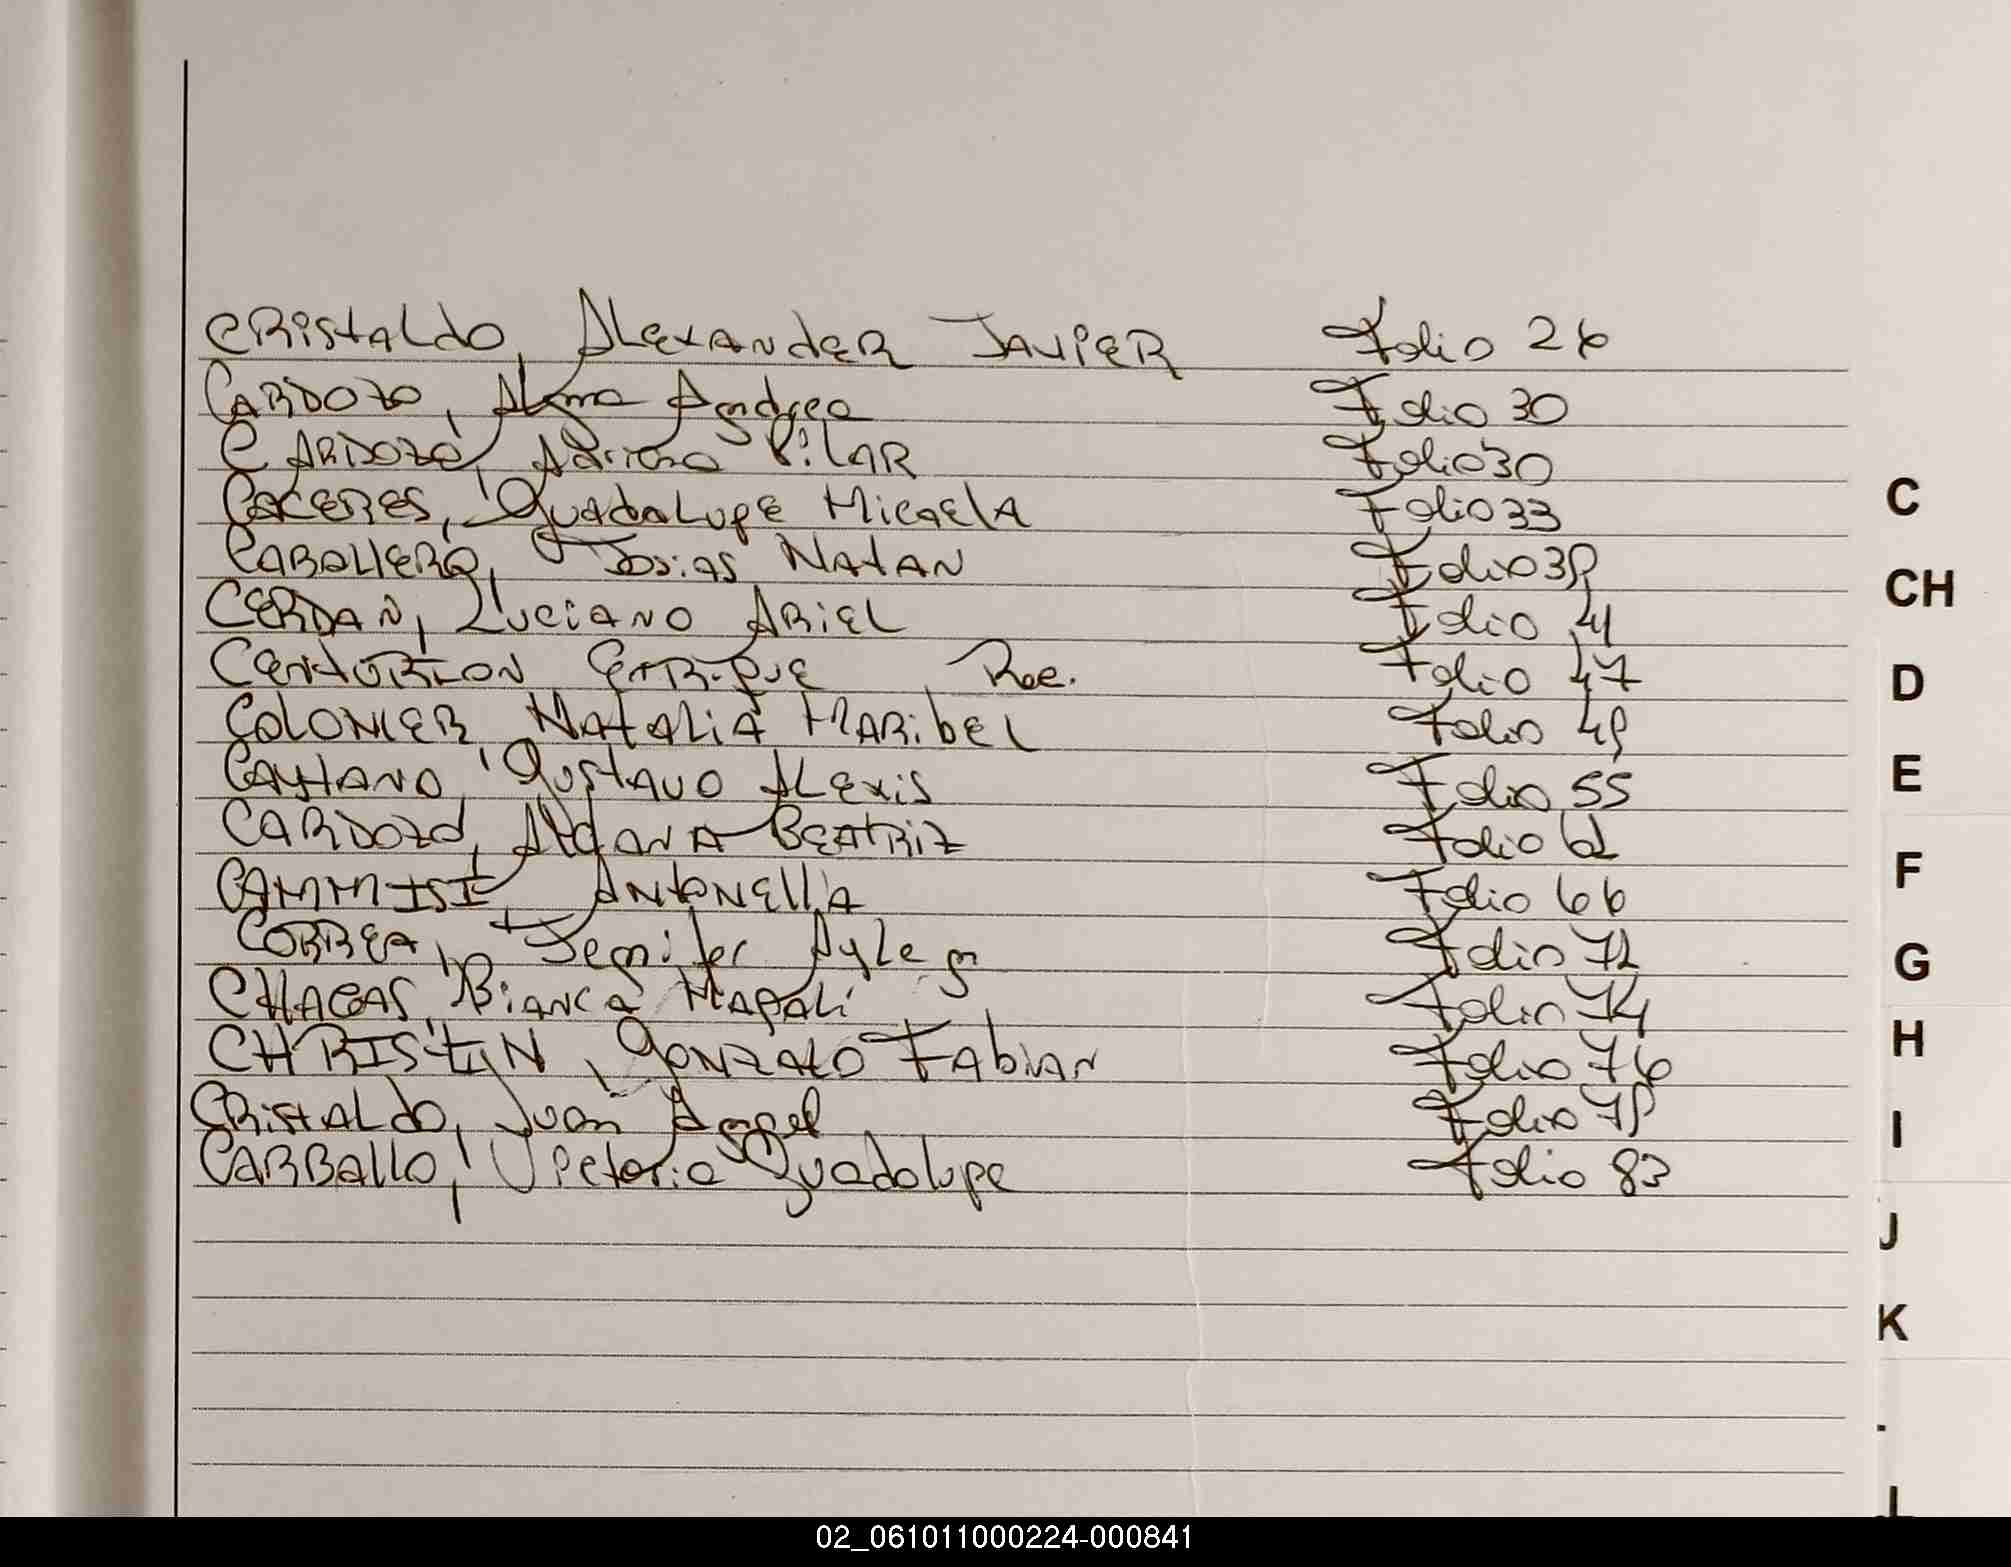 CRistaldo, Alexander Javier Folio 26
Cardozo, Alma Andrea Folio 30
Cardozo, Adriana Pilar Folio 30
Caceres, Guadalupe Micaela Folio 33
Caballero, Josias Natan Folio 38
Cerdan, Luciano Ariel Folio 41
Centurion Enrique Rec. Folio 47
Colonier, Natalia Maribel Folio 48
Caytano, Gustavo Alexis Folio 55
Cardozo, Aldana Beatriz Folio 62
Cammisi, Antonella Folio 66
Correa, Jennifer Aylen Folio 72
Chagas, Bianca Magali Folio 74
Christin, Gonzalo Fabian Folio 76
Cristaldo, Juan Angel Folio 78
Carballo, Victoria Guadalupe Folio 83
C
CH
D
E
F
G
H
I
J
K
L
02_061011000224-000841